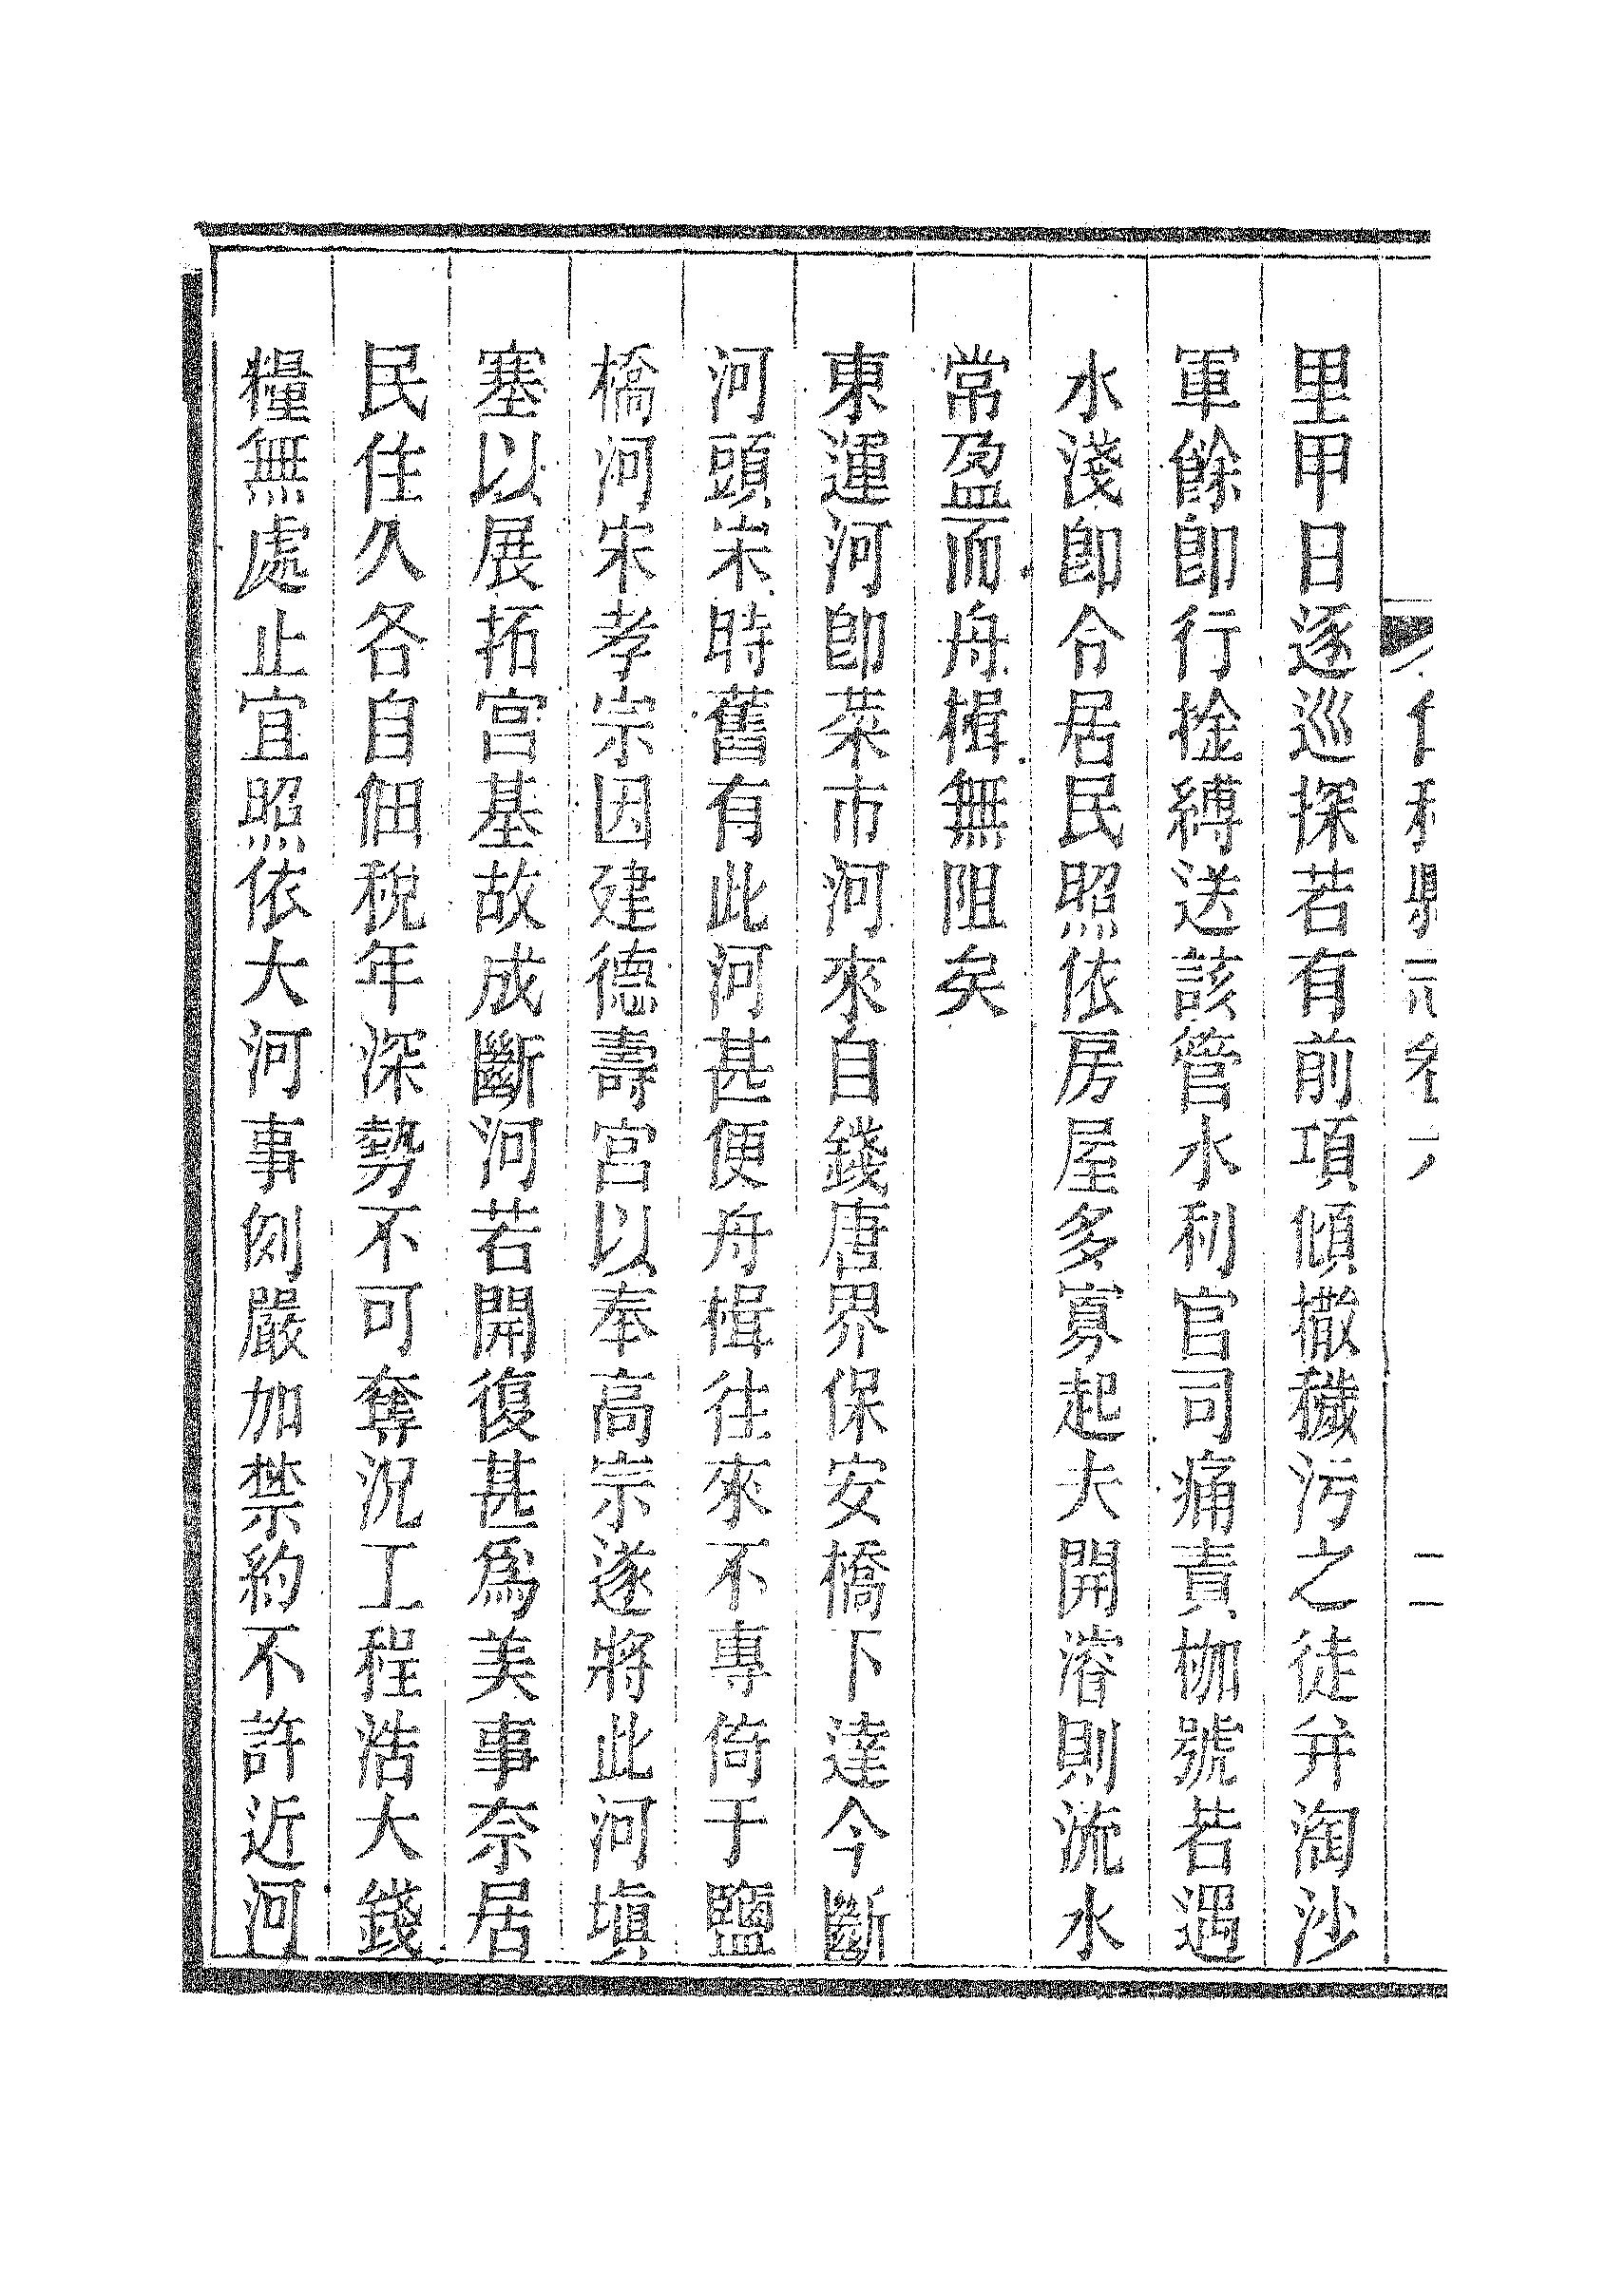 里甲日逐巡探若有前項傾撒穢污之徒并淘沙
軍餘卽行拴縛送該管水利官司痛責枷號若遇
水淺卽令居民照依房屋多寡起夫開濬則流水
常盈而舟楫無阻矣
東運河卽菜市河來自錢唐界保安橋下達今斷
河頭宋時舊有此河甚便舟楫往來不專倚于鹽
橋河宋孝宗因建德壽宮以奉高宗遂將此河塡
塞以展拓宮基故成斷河若開復甚爲美事奈居
民住久各自佃稅年深勢不可奪況工程浩大錢
糧無處止宜照依大河事例嚴加禁約不許近河